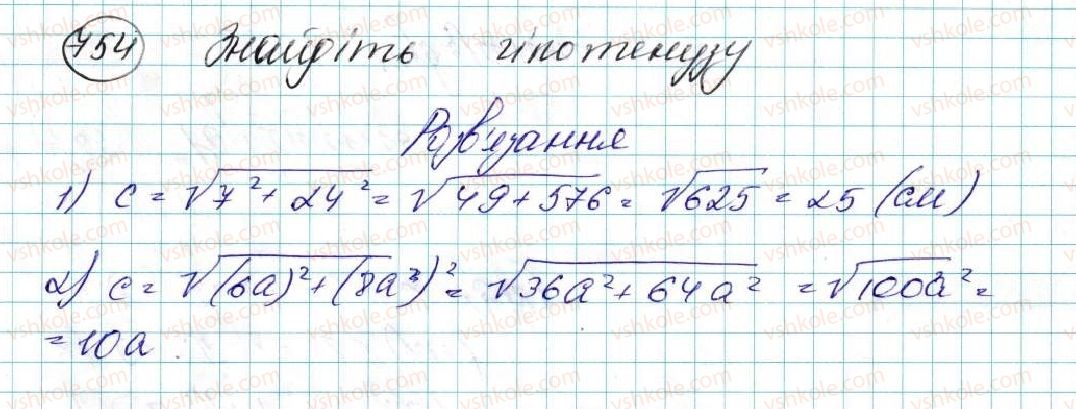 754 Знайдіть гіпотенузу
Розв'язання
1) c = √7² + 24² = √49 + 576 = √625 = 25 (см)
2) c = √(6a)² + (8a²)² = √36a² + 64a² = √100a² =
= 10a